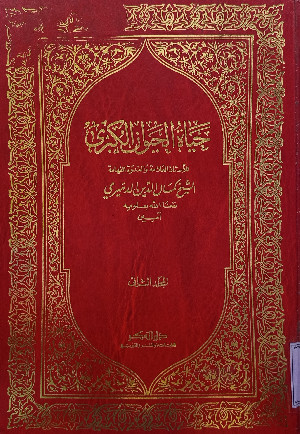 حياة الحيوان الكبرى
للأستاذ العلامة والقدوة الفهامة
الشيخ كمال الدين الدميري
نفعنا الله بعلومه
آمين
المجلد الثاني
دار الفكر